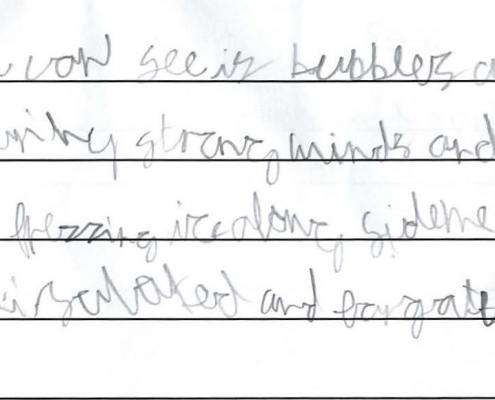 can see is bubbles
strong minds and
frezzing ice along sideme
isolated and forgate